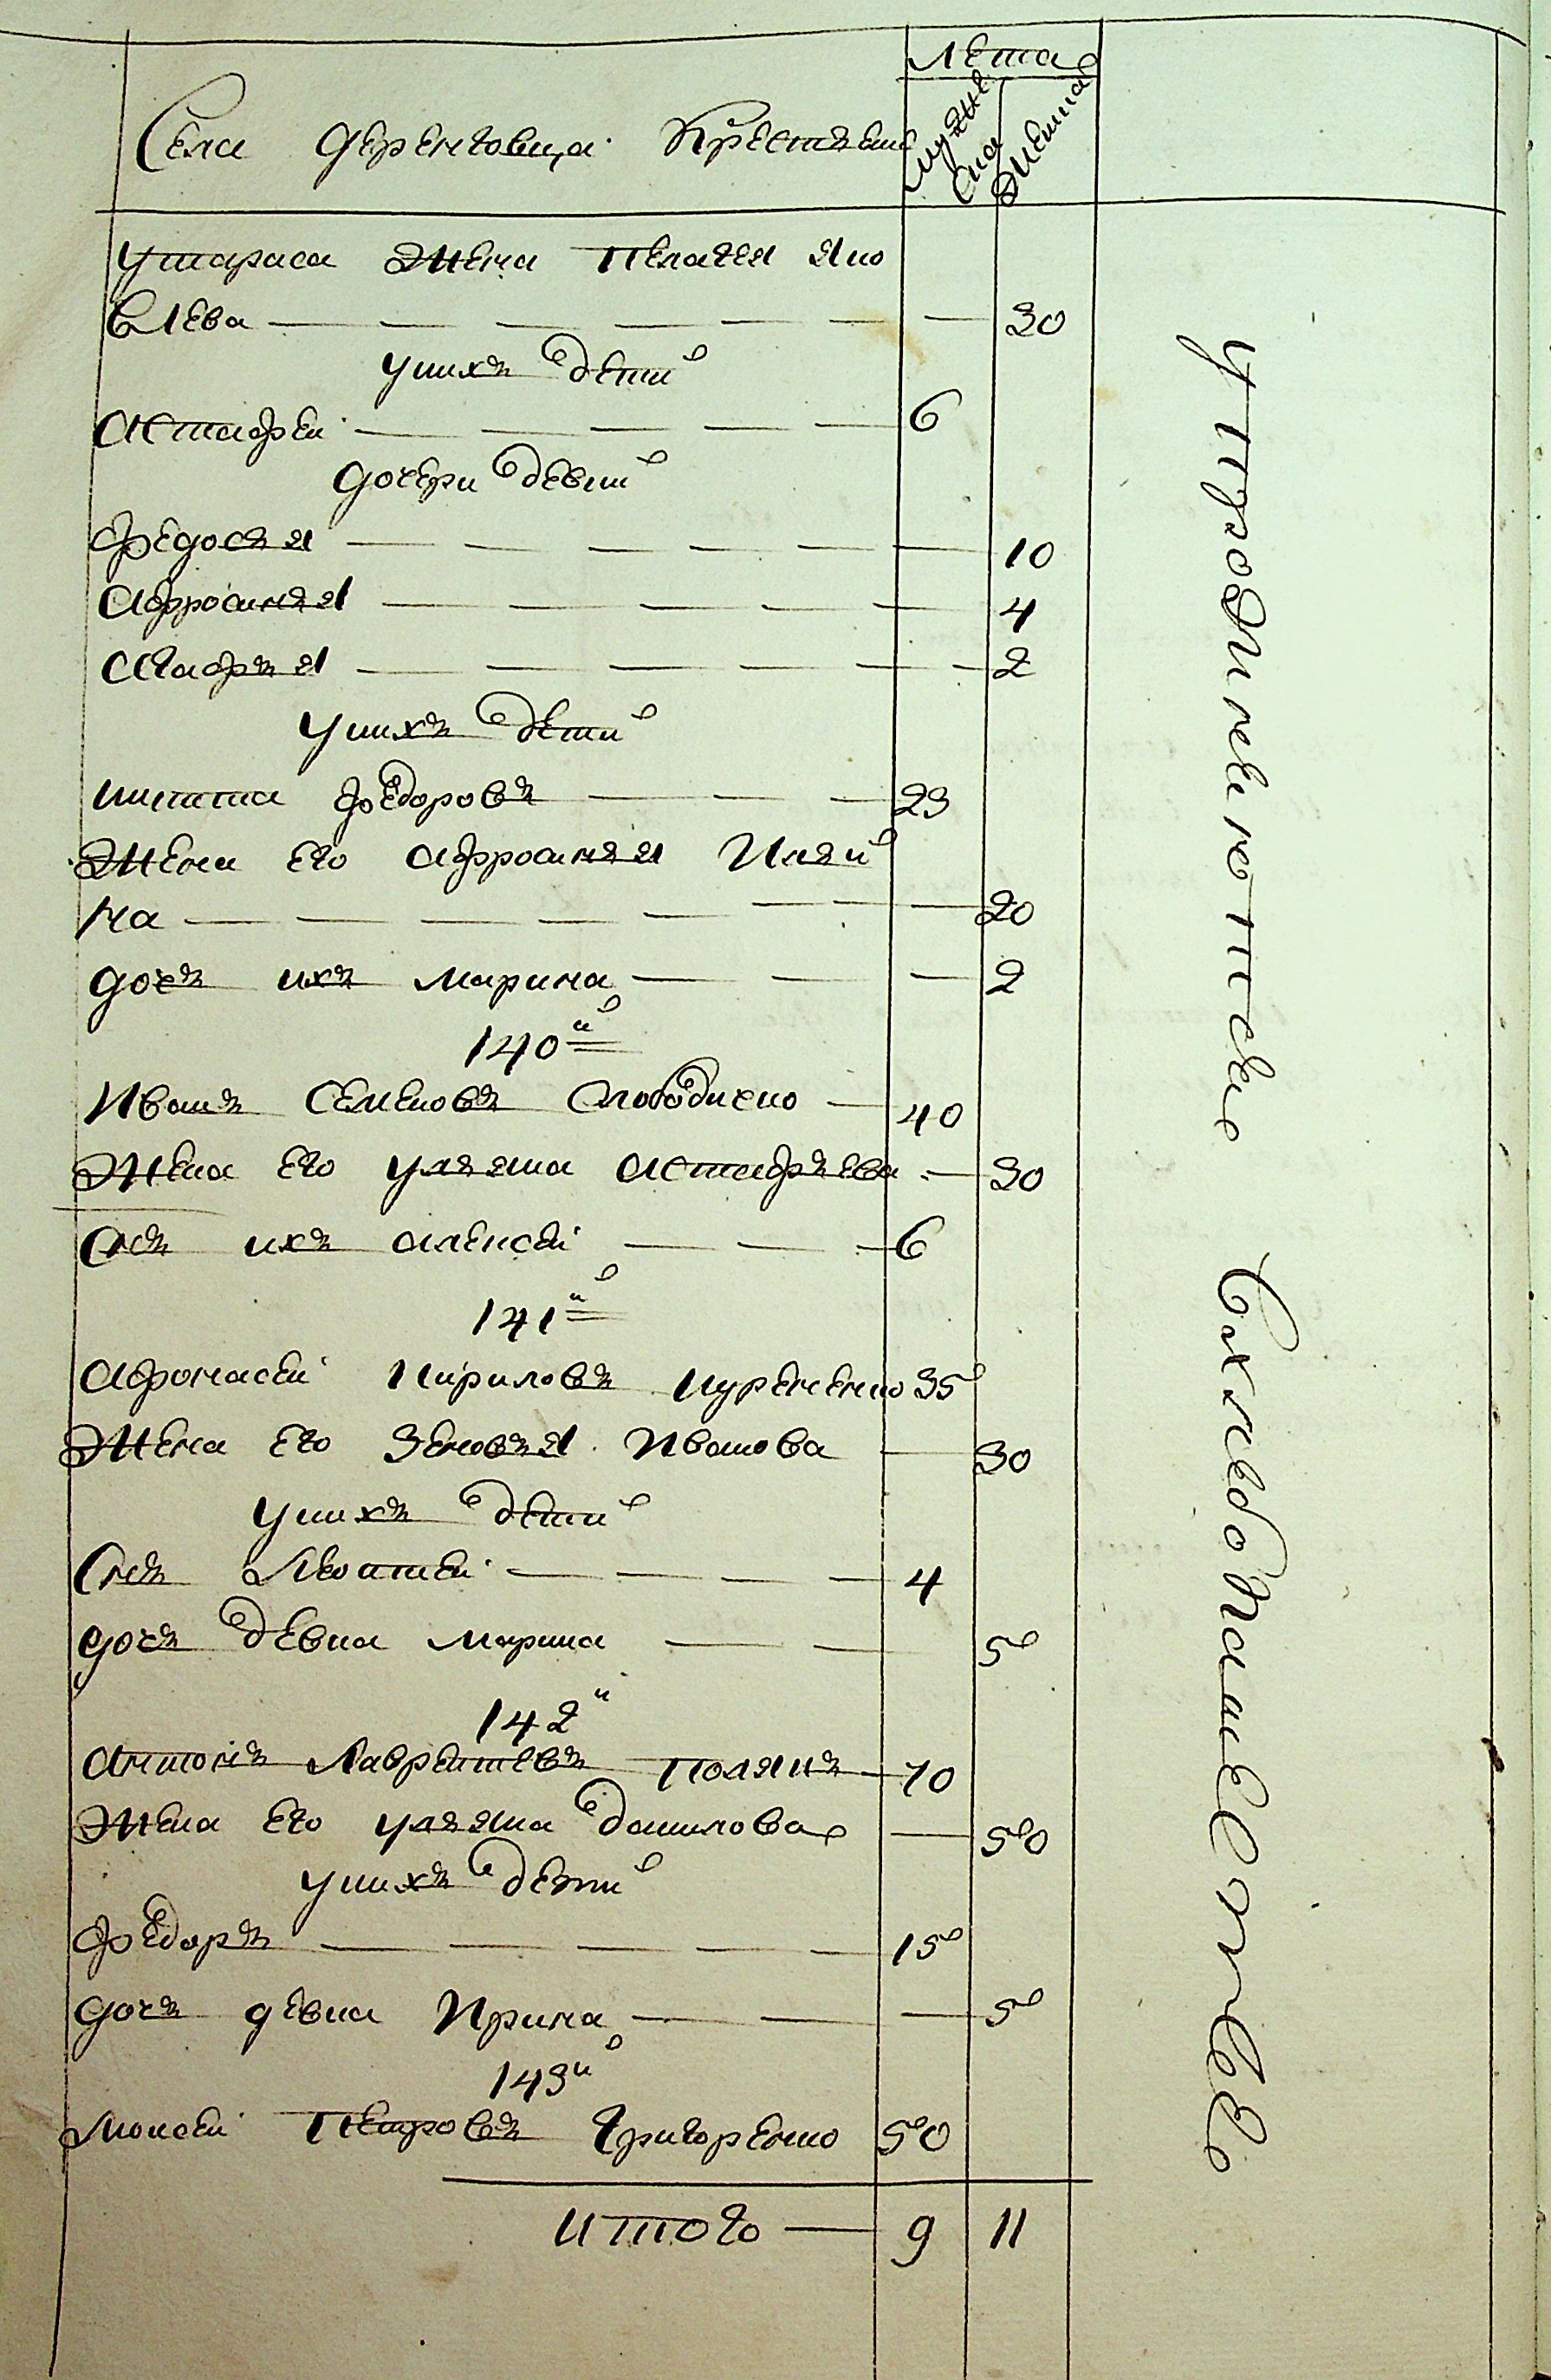 Лета
Села Деренковца Крестяне
мужеска
женска
у тараса жена Пелагея Яко
влева 30
у них дети
Астафеи 6
дочери девки
Федосия 10
Афросиния 4
Агафия 2
у них дети
никита Федоровъ 23
Жена его Афросиния Ильи
на 20
дочь ихъ Марина 2
140й
Иванъ Семеновъ Слободченко 40
Жена его ульяна Астафьева 30
Снъ ихъ Алексеи 6
141й
Афонасеи Кириловъ 35
Жена его Зеновия Иванова 30
у них дети
Снъ Матвеи 4
дочь девка Марина 5
142й
Антонъ Лаврентьевъ Полякъ 70
Жена его ульяна данилова 50
у них дети
Федоръ 15
дочь девка Ирина 5
143й
Моисеи Петровъ Григоренко 50
Итого 9 11